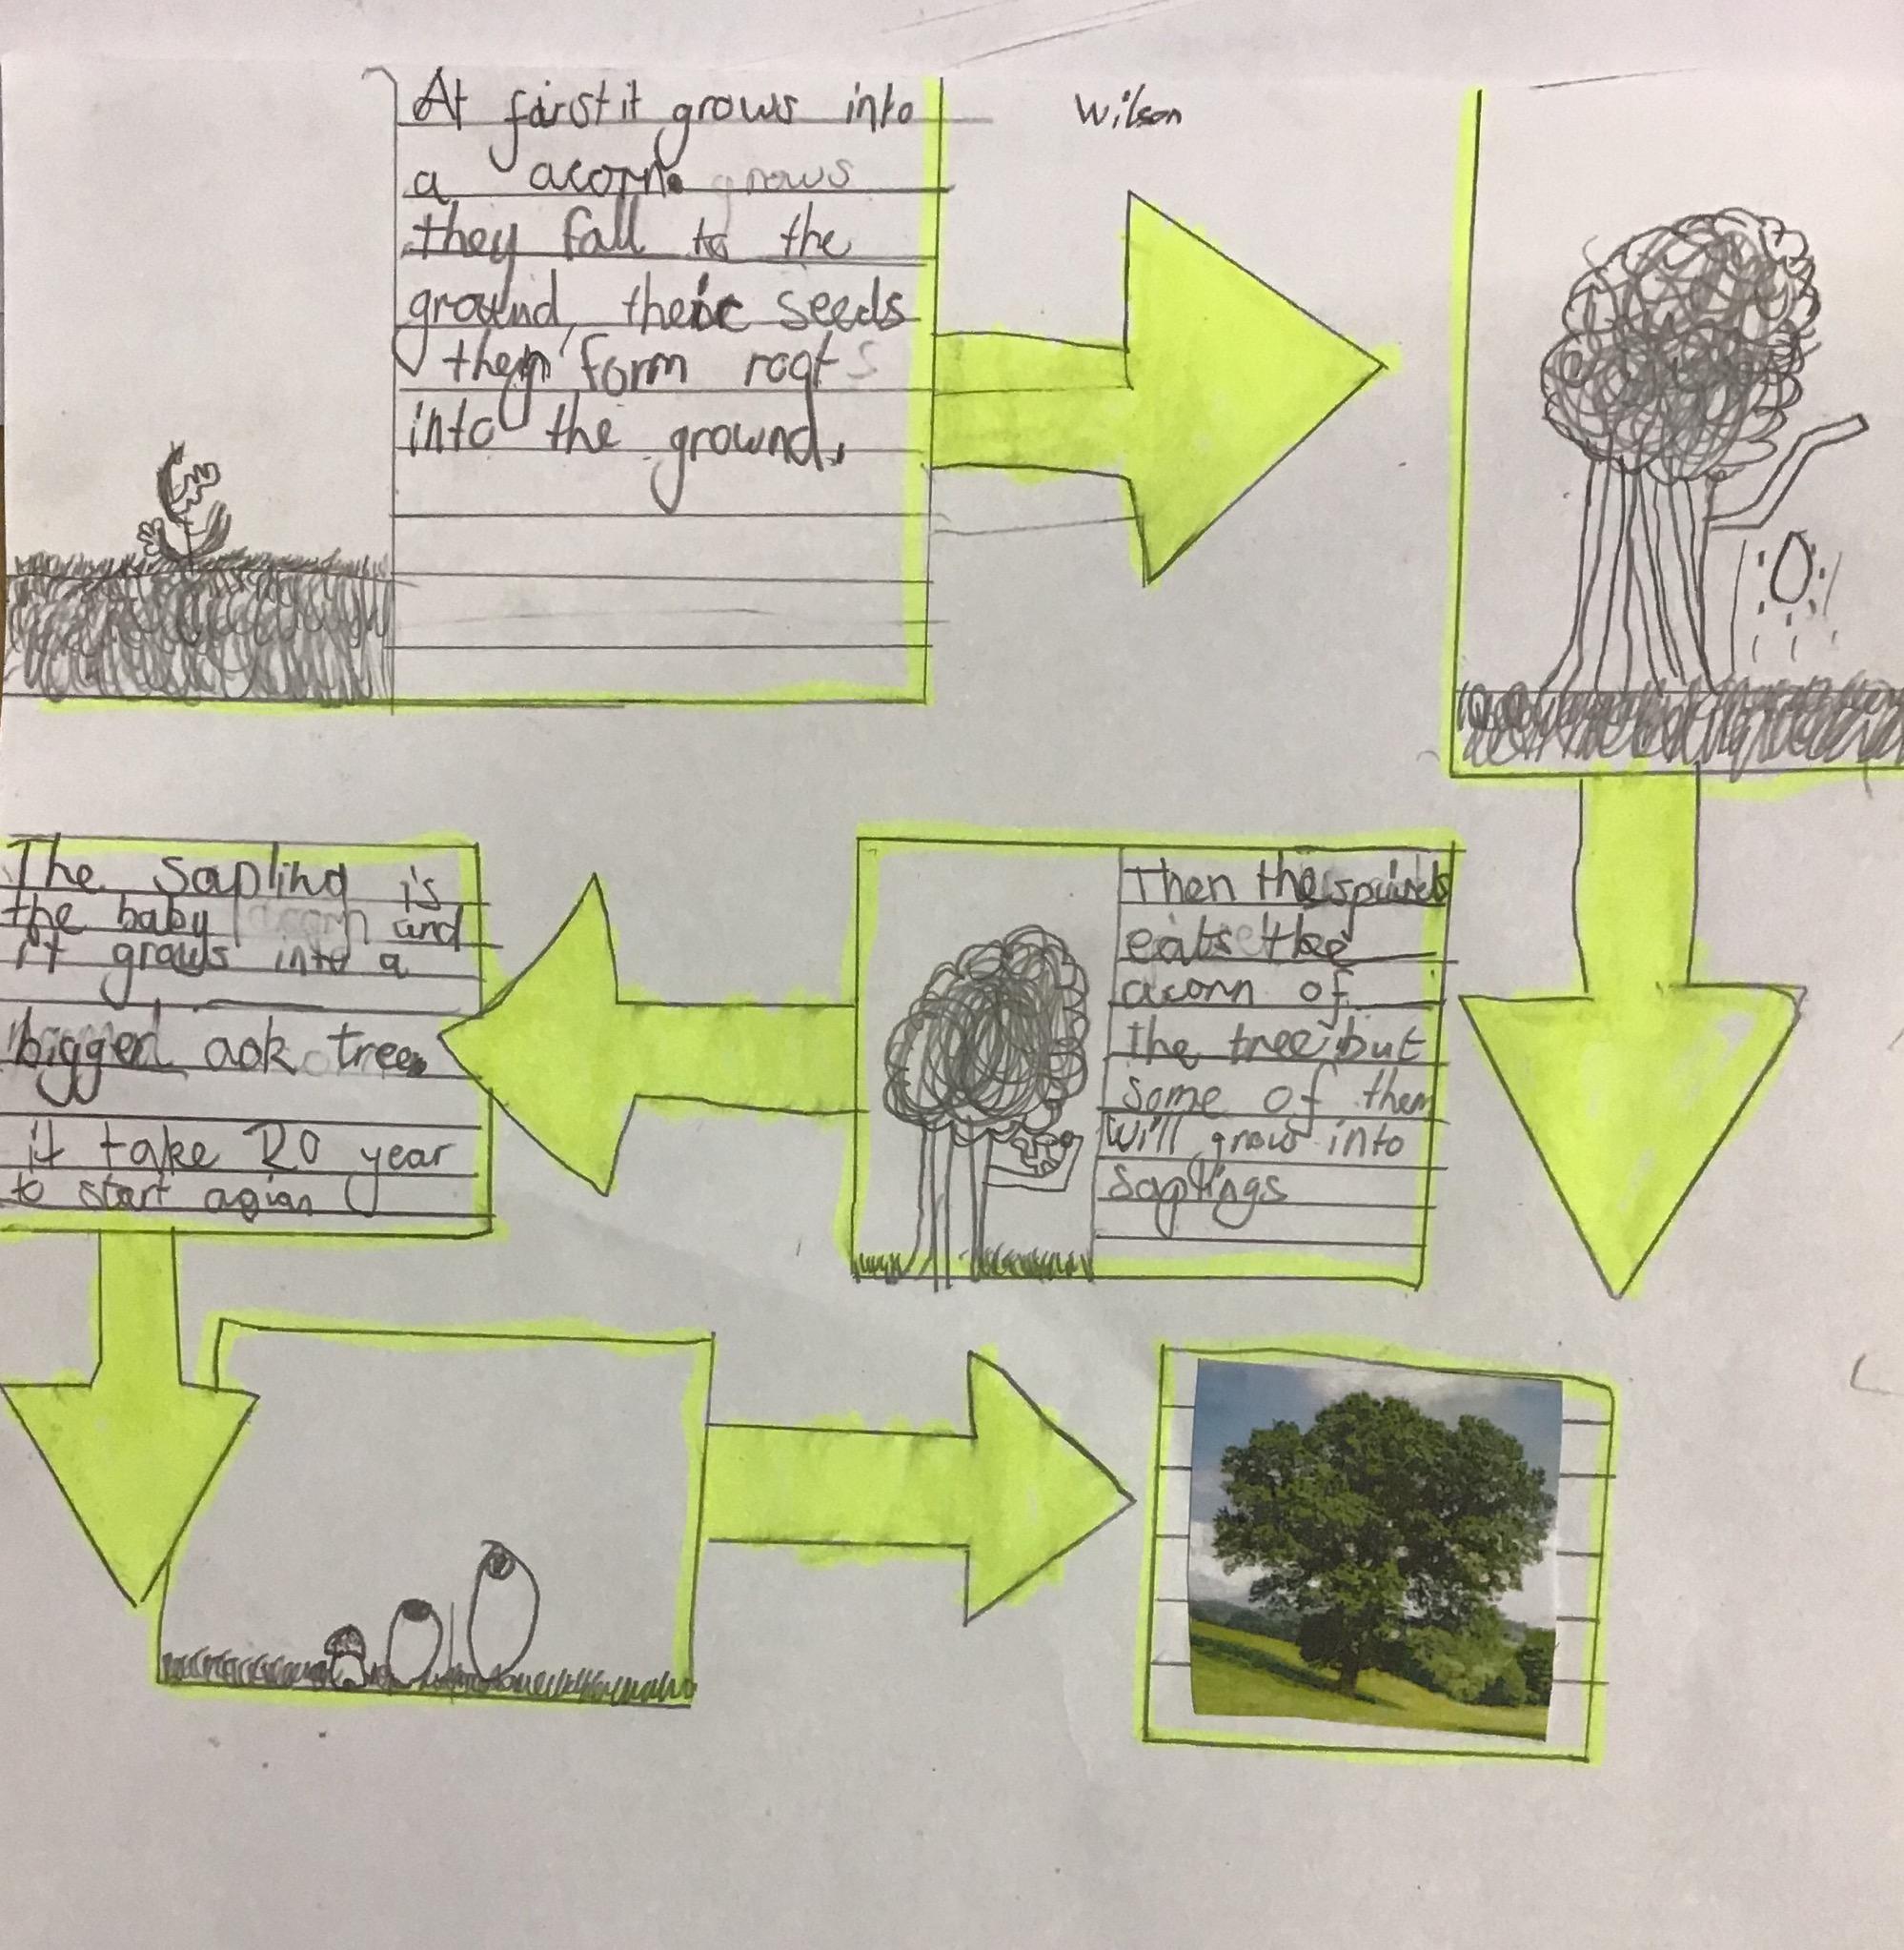 At first it grows into
a acorn. grows
they fall to the
ground, their seeds
then form roots
into the ground.
Wilson
Then the squirrels
eats the
acorn of
the tree but
some of them
will grow into
saplings
The sapling is
the baby and
it grows into a
bigger aok tree.
it take 20 year
to start agian